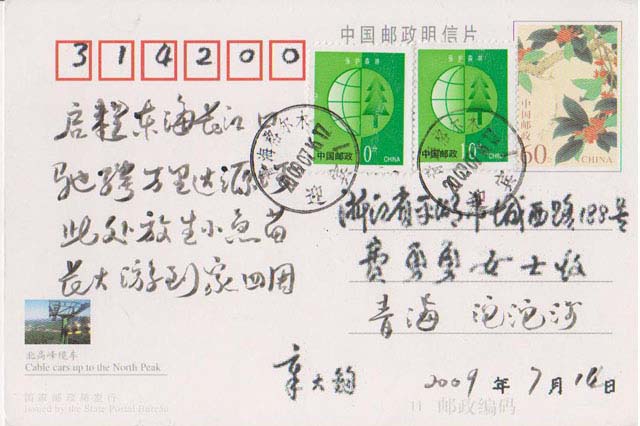 中国邮政明信片
314200
保护森林
保护森林
中国邮政
CHINA
中国邮政
10分
CHINA
中国邮政
60分
CHINA
青海格尔木
2009.07.16.17
迎宾
启程东海长江口
驰骋万里达源
此处放生小鱼苗
长大游到家四周
浙江省平湖市城西路188号
费 女士收
青海 沱沱河
章大钧
2009年7月14日
北高峰缆车
Cable cars up to the North Peak
国家邮政局发行
issued by the State Postal Bureau
邮政编码